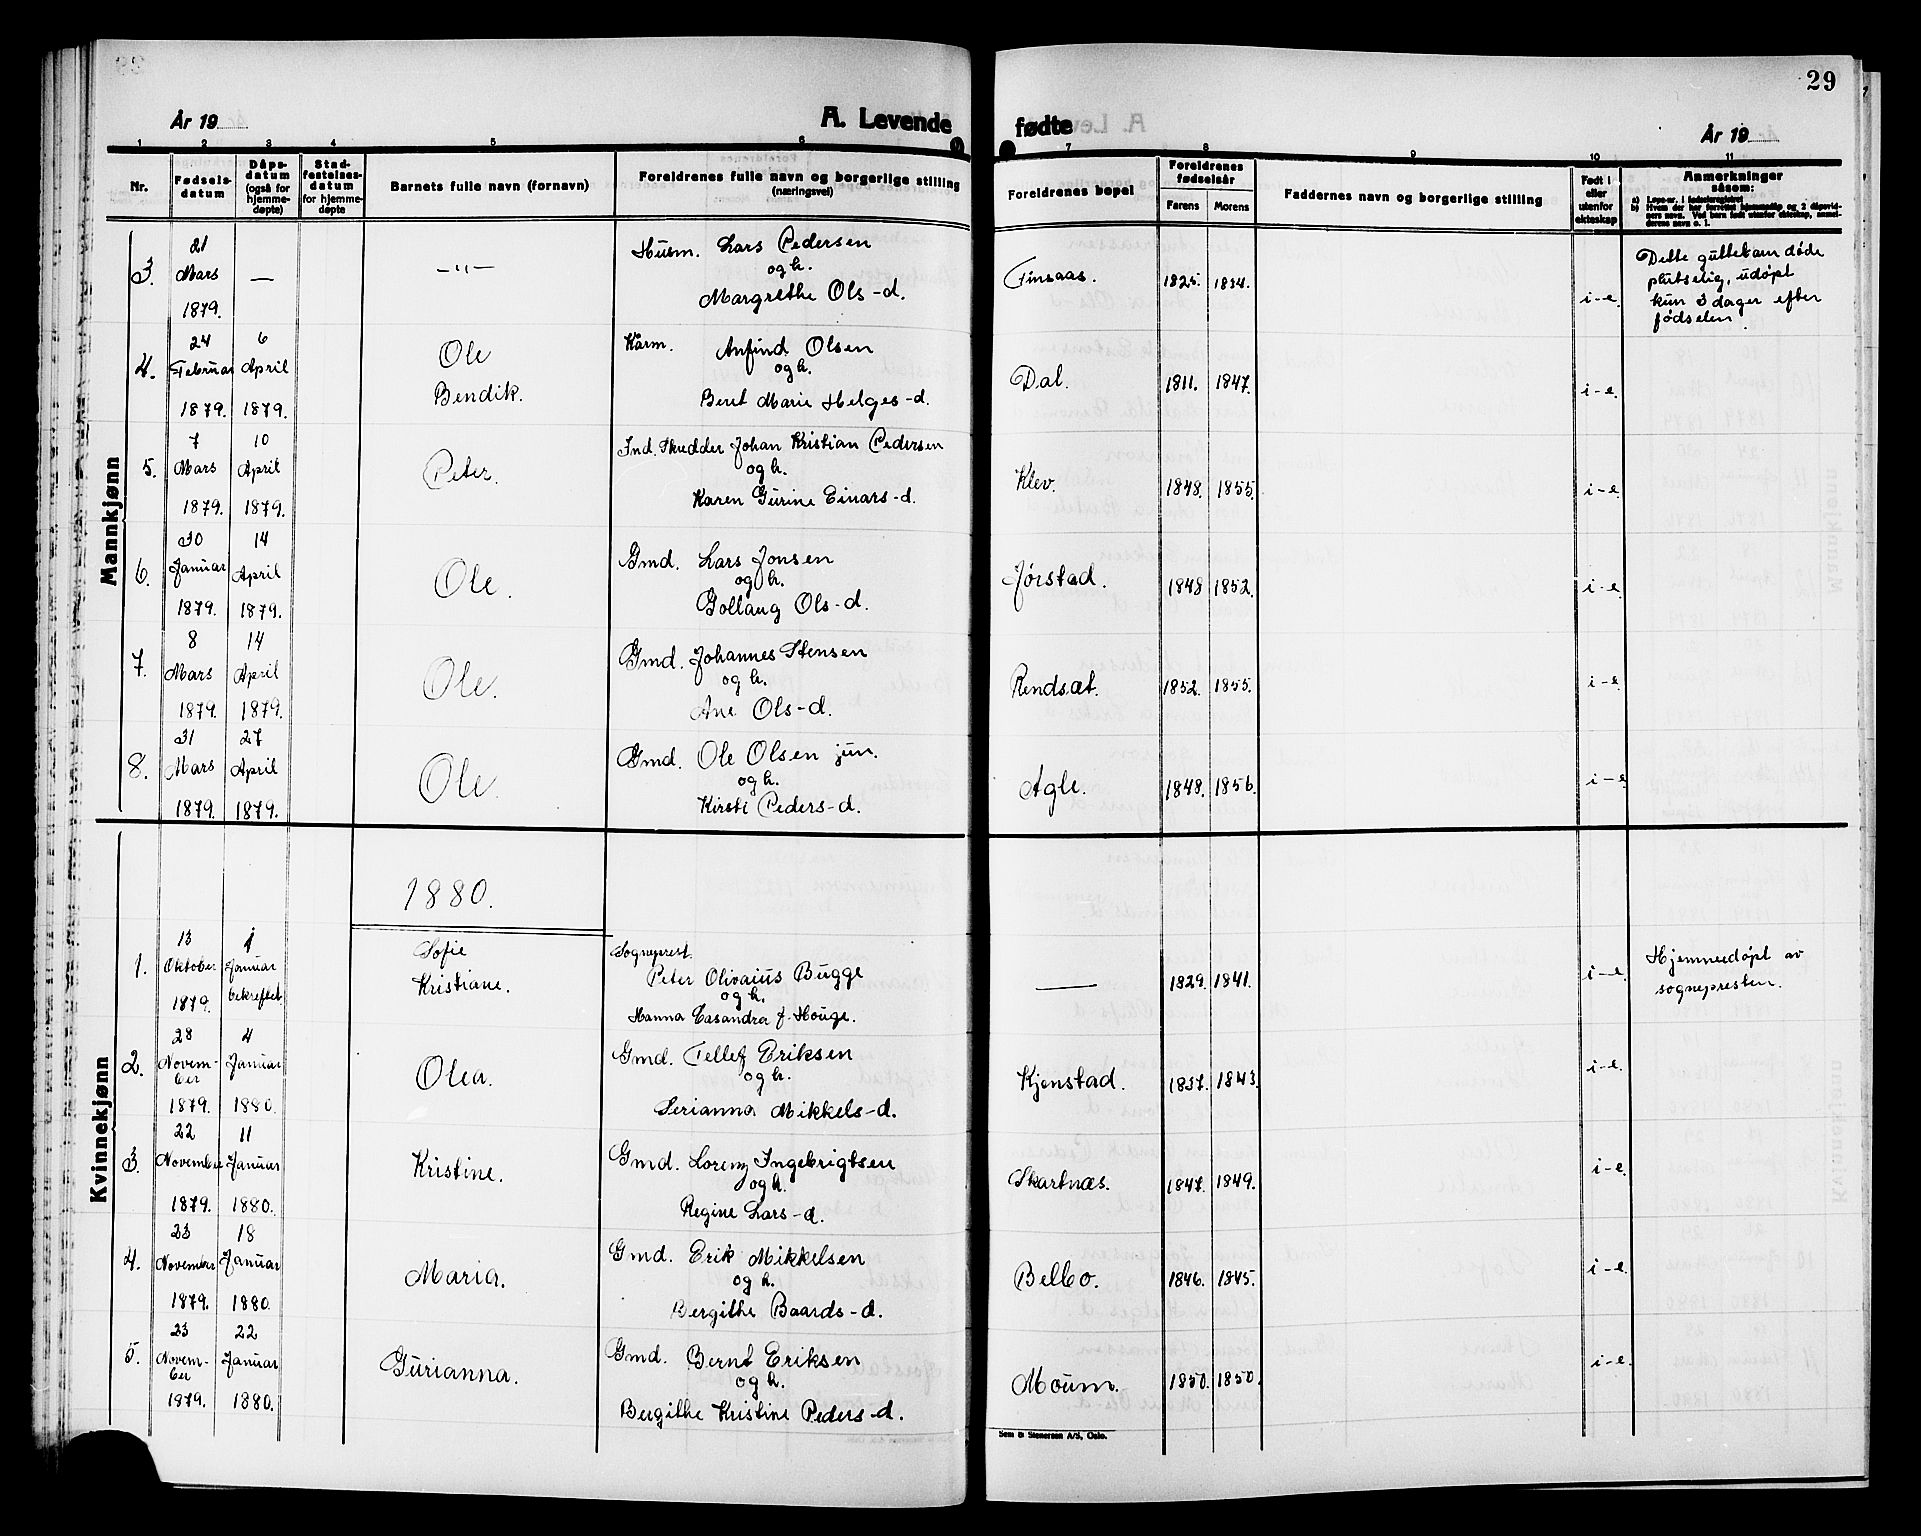 29
År 19
A. Levende
fødte
År 19
1 2 3 4 5 6 7 8 9 10 11
Nr.
Fødsels-
datum
Dåps-
datum
(også for
hjemme-
døpte)
Stad-
festelses-
datum
for hjemme-
døpte
Barnets fulle navn (fornavn)
Foreldrenes fulle navn og borgerlige stilling
(næringsvei)
Foreldrenes bopel
Foreldrenes
fødselsår
Farens Morens
Faddernes navn og borgerlige stilling
Født i
eller
utenfor
ekteskap
Anmerkninger
såsom:
a) Løpe-nr. i fødselsregistret
Mannkjønn
3. 21 Mars 1879. — —"— Husm. Lars Pedersen
og h.
Margrethe Ols-d. Finsaas. 1825. 1834. i-e.
Dette guttebarn døde
plutselig, udøpt
kun 3 dager efter
fødselen.
4. 24 Februar 1879. 6 April 1879. Ole
Bendik.
Kårm. Anfind Olsen
og h.
Beret Marie Helges-d. Dal. 1811. 1847. i-e.
5. 7 Mars 1879. 10 April 1879. Peter.
Ind. Skredder Johan Kristian Pedersen
og h.
Karen Gurine Einars-d. Klev. 1848. 1855. i-e.
6. 30 Januar 1879. 14 April 1879. Ole.
Gmd. Lars Jonsen
og h.
Gollaug Ols-d. Jørstad. 1848 1852. i-e.
7. 8 Mars 1879. 14 April 1879. Ole.
Gmd. Johannes Stensen
og h.
Ane Ols-d. Rendsæt. 1852. 1855. i-e.
8. 31 Mars 1879. 27 April 1879. Ole.
Gmd. Ole Olsen jun.
og h.
Kirsti Peders-d. Agle. 1848. 1856. i-e
Kvinnekjønn
1880.
1. 13 Oktober 1879. 1 Januar bekreftet Sofie
Kristiane.
Sogneprest.
Peter Olivaius Bugge
og h.
Hanna Casandra f. Houge. — 1829. 1841. i-e.
Hjemmedøpt av
sognepresten.
2. 28 Novem-
ber 1879. 4 Januar 1880. Olea.
Gmd. Tellef Eriksen
og h.
Serianna Mikkels-d. Kjenstad. 1837. 1843. i-e.
3. 22 November 1879. 11 Januar 1880. Kristine.
Gmd. Lorenz Ingebrigtsen
og h.
Regine Lars-d. Skartnæs. 1847. 1849. i-e.
4. 23 November 1879. 18 Januar 1880. Maria.
Gmd. Erik Mikkelsen
og h.
Bergithe Baards-d. Belbo. 1846. 1845. i-e.
5. 23 Novem-
ber 1879. 22 Januar 1880. Gurianna.
Gmd. Bernt Eriksen
og h.
Bergithe Kristine Peders-d. Moum. 1850. 1850. i-e.
Sem & Stenersen A/S, Oslo.